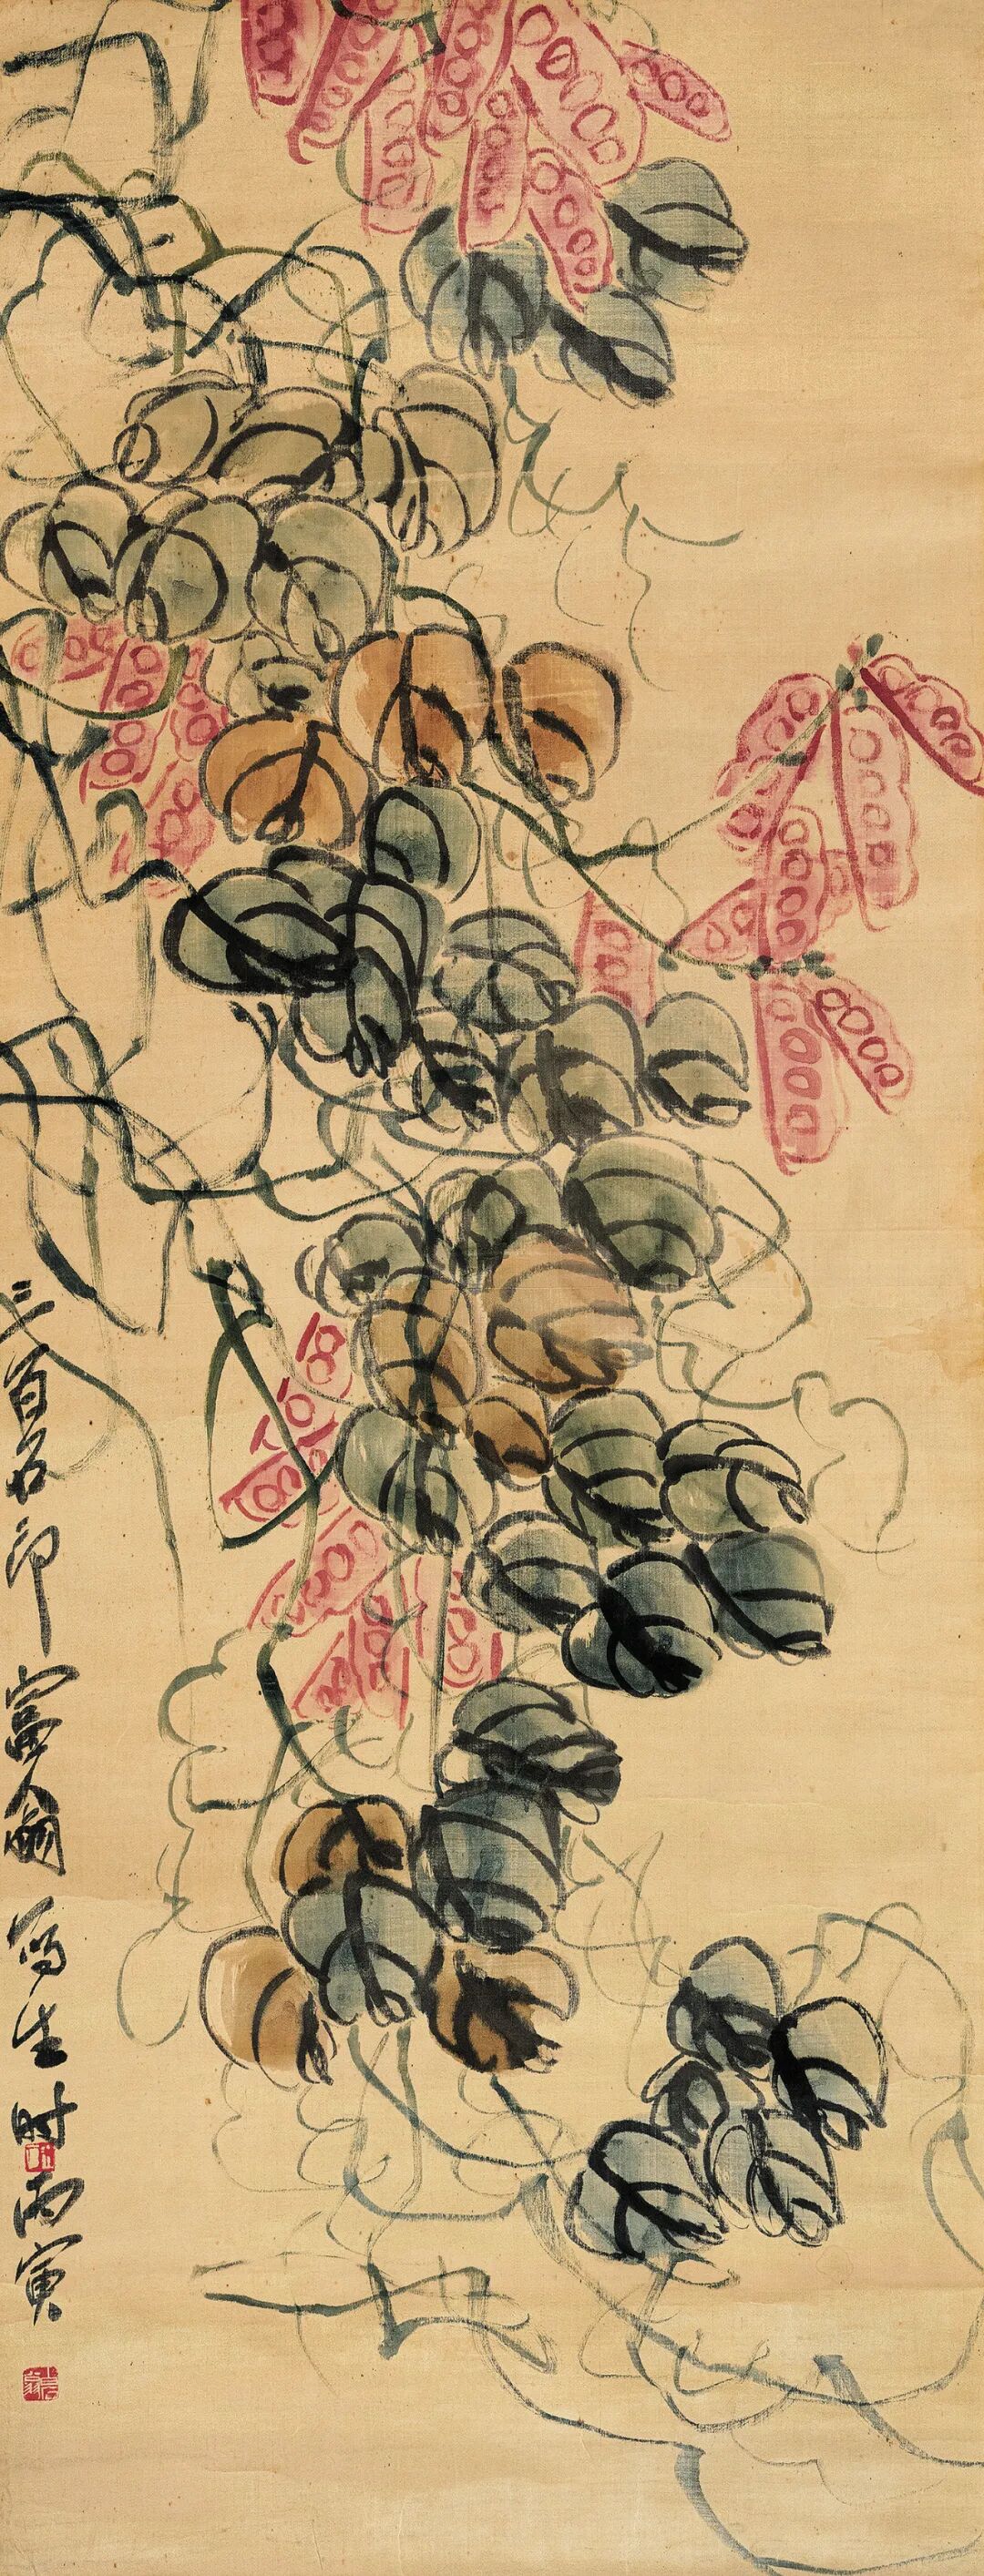 三百石印富人翁写生时丙寅